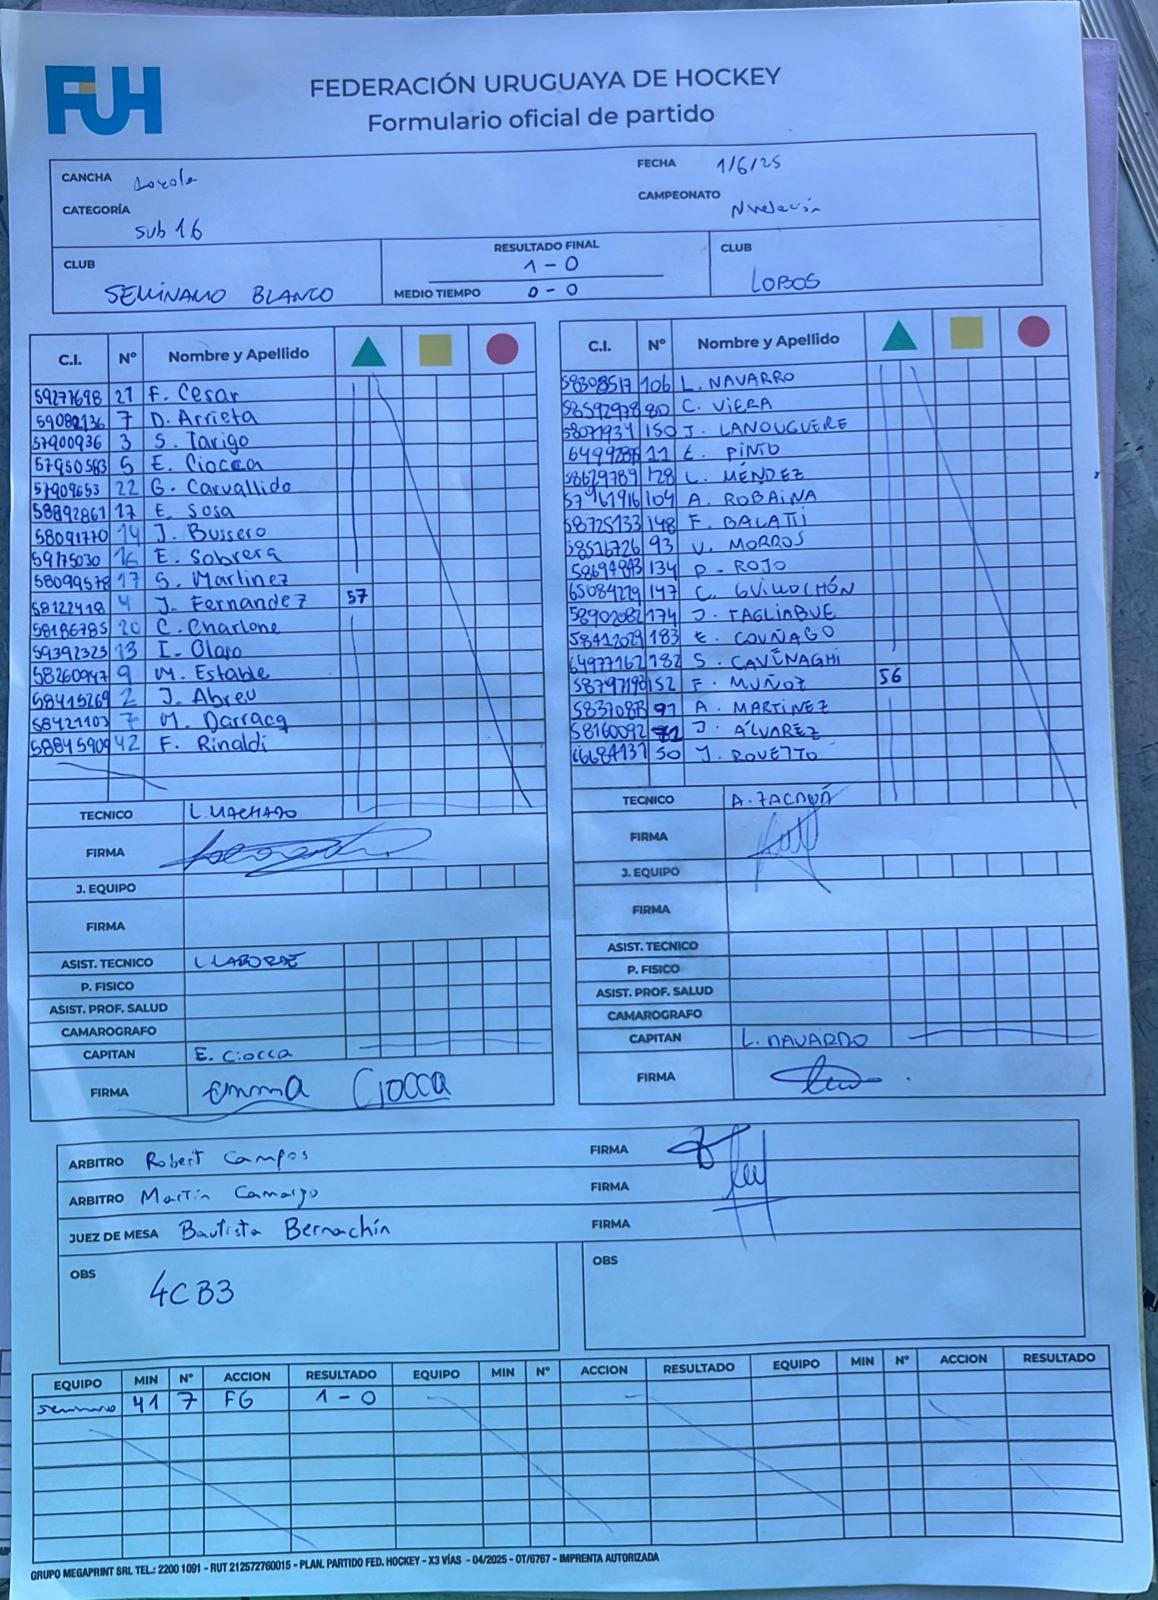 FUH
FEDERACIÓN URUGUAYA DE HOCKEY
Formulario oficial de partido
CANCHA Loyola
FECHA 1/6/25
CATEGORÍA Sub 16
CAMPEONATO Nivelación
CLUB SEMINARIO BLANCO
RESULTADO FINAL 1-0
MEDIO TIEMPO 0-0
CLUB LOBOS
C.I. Nº Nombre y Apellido
59271698 21 F. Cesar
59082136 7 D. Arrieta
57900936 3 S. Tarigo
57950583 5 E. Ciocca
57909653 22 G. Carvallido
58892861 17 E. Sosa
58091770 14 J. Bussero
59175030 16 E. Sobrera
58099578 17 S. Martinez
58122418 4 J. Fernandez 57
58186785 20 C. Charlone
59392323 13 I. Olaso
58260947 9 M. Estable
58415269 2 J. Abreu
58421103 7 M. Darracq
58845909 42 F. Rinaldi
TECNICO L. MACHADO
FIRMA
J. EQUIPO
FIRMA
ASIST. TECNICO L. LABORDE
P. FISICO
ASIST. PROF. SALUD
CAMAROGRAFO
CAPITAN E. Ciocca
FIRMA Emma Ciocca
C.I. Nº Nombre y Apellido
58308517 106 L. NAVARRO
58592978 80 C. VIERA
58071931 150 J. LANOUGUERE
11 E. PINTO
58629789 128 L. MÉNDEZ
57961916 104 A. ROBAINA
58725133 148 F. BALATTI
58516726 93 V. MORROS
134 P. ROJO
65084229 147 C. GUILLOCHÓN
58902082 174 J. TAGLIABUE
58412029 183 E. COUÑAGO
64977162 182 S. CAVENAGHI
152 F. MUÑOZ 56
91 A. MARTINEZ
58160092 J. ÁLVAREZ
66684131 50 J. ROVETTO
TECNICO A.
FIRMA
J. EQUIPO
FIRMA
ASIST. TECNICO
P. FISICO
ASIST. PROF. SALUD
CAMAROGRAFO
CAPITAN L. NAVARRO
FIRMA
ARBITRO Robert Campos FIRMA
ARBITRO Martín Camargo FIRMA
JUEZ DE MESA Bautista Bernachín FIRMA
OBS 4CB3
OBS
EQUIPO MIN Nº ACCION RESULTADO EQUIPO MIN Nº ACCION RESULTADO EQUIPO MIN Nº ACCION RESULTADO
seminario 41 7 FG 1-0
GRUPO MEGAPRINT SRL TEL.: 2200 1091 - RUT 212572760015 - PLAN. PARTIDO FED. HOCKEY - X3 VÍAS - 04/2025 - OT/6767 - IMPRENTA AUTORIZADA